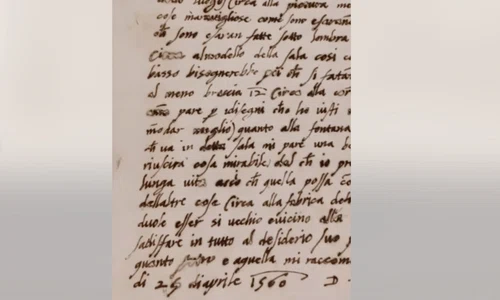 luogo circa alla pictura me
cose maravigliose come sono e saran
ch sono e saran fatte sotto lombra
Circa al modello della sala cosi co
basso bisognerebbe poi ch si
al meno brescia 12 Circa alla cor
pare p disegni cho ho visti
modar meglio) quanto alla fontana
ch va in detta sala mi pare una be
riuscira cosa mirabile dal ch io pr
lunga vita acio ch quella possa co
dellaltre cose Circa alla fabrica del
duole esser si vechio e vicino alla
sadisfare in tutto al desiderio suo p
quanto posso e a quella mi raccom
di 25 di aprile 1560 D